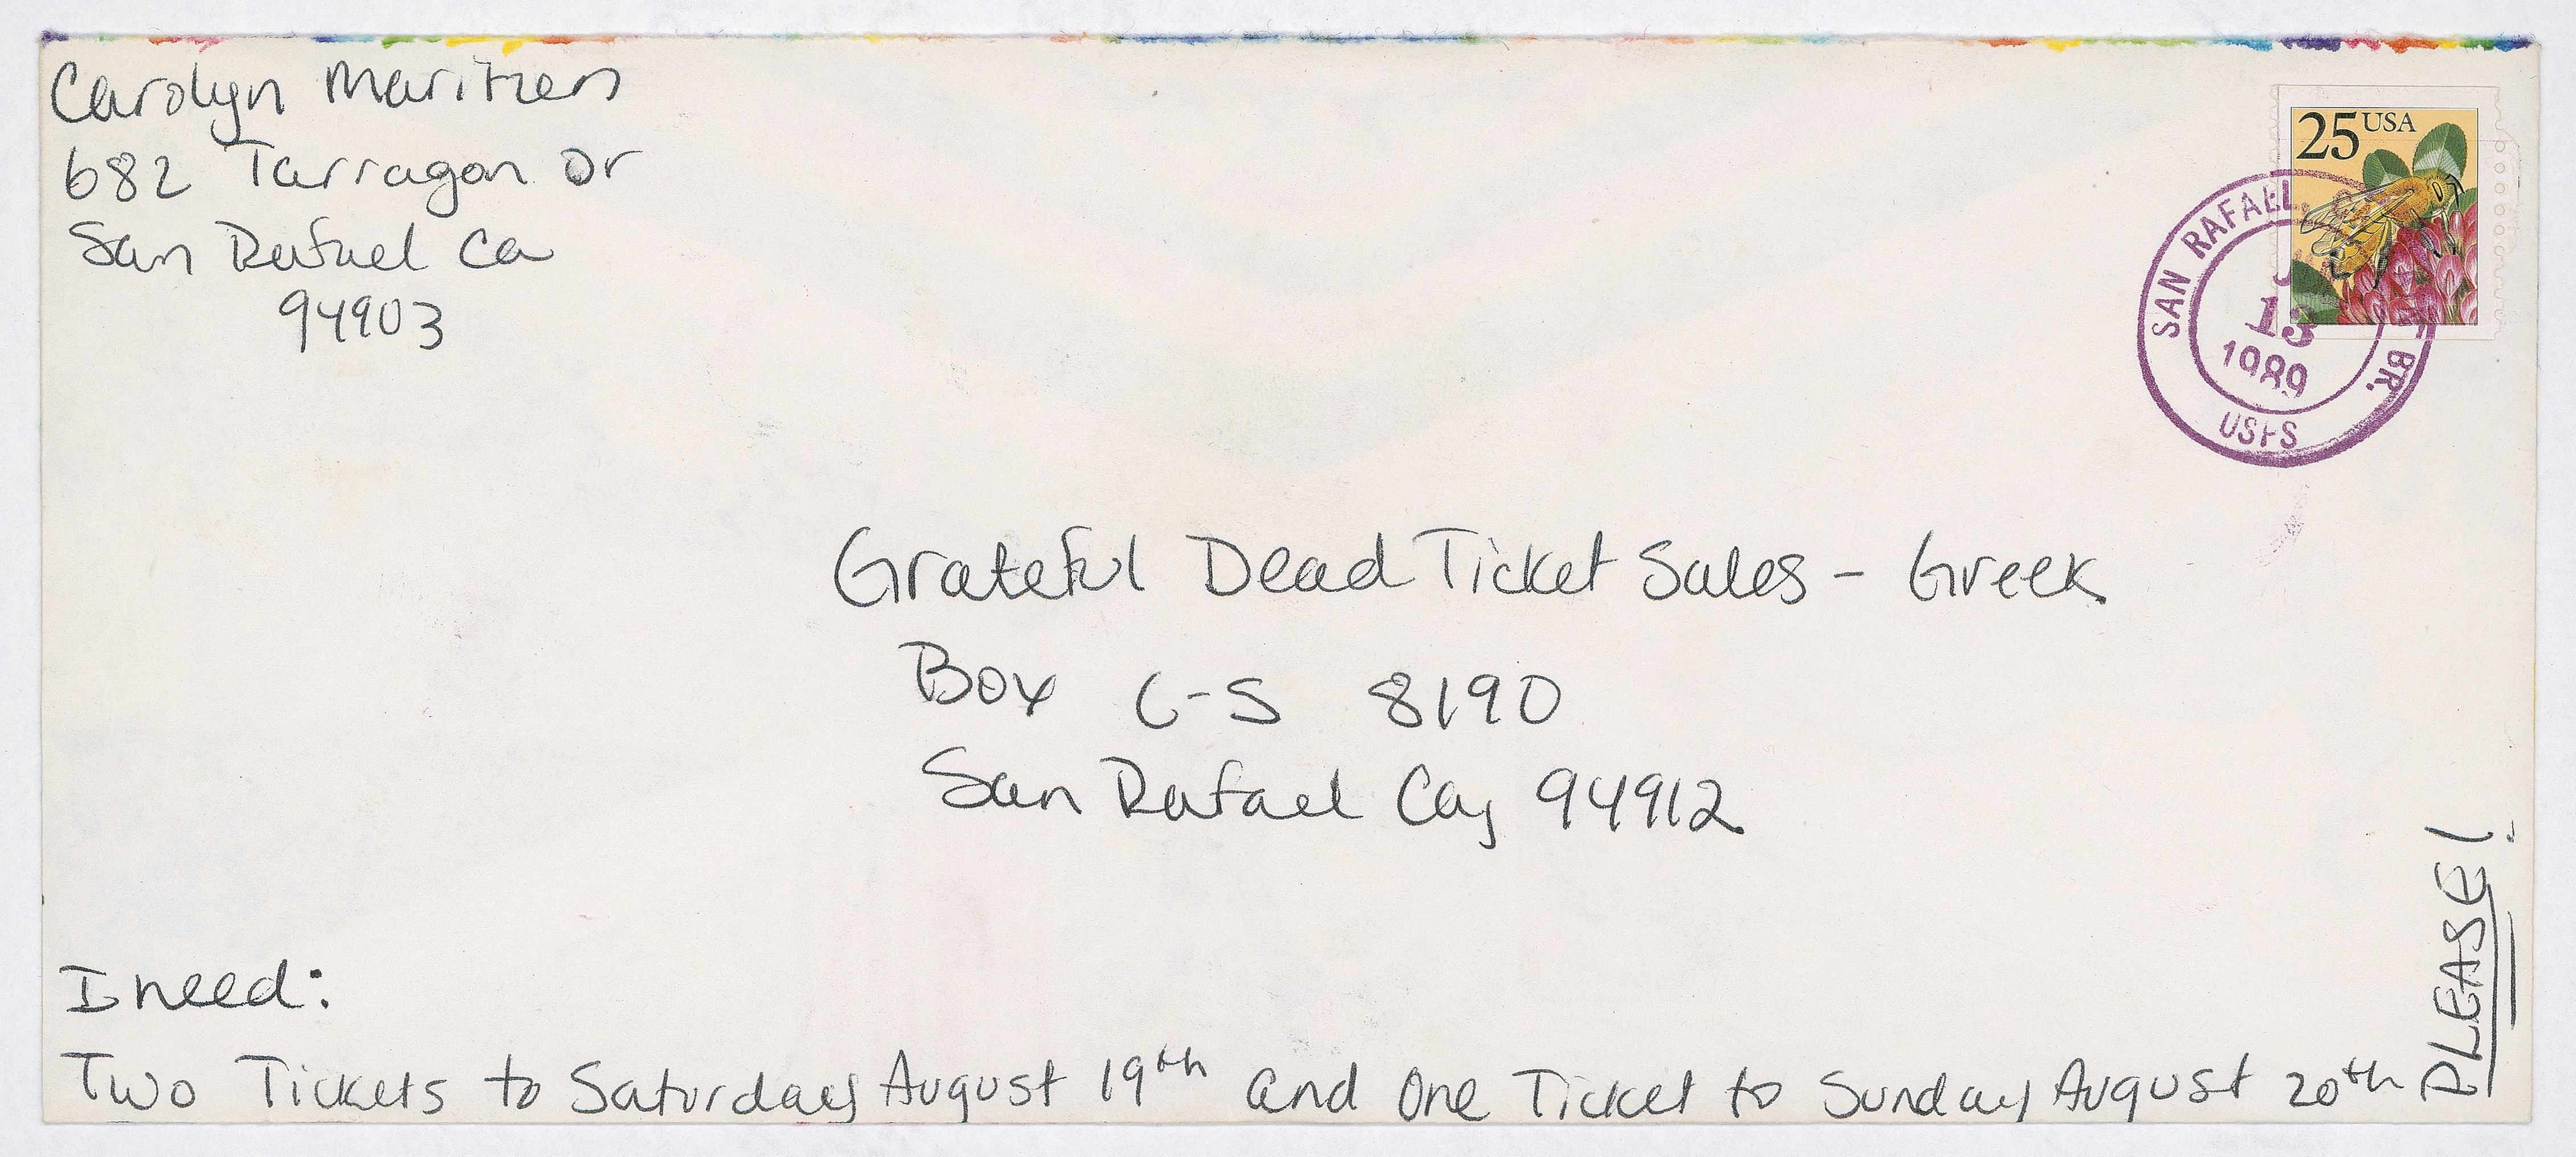 Carolyn Maritzen
682 Tarragon Dr
San Rafael Ca
94903
25 USA
SAN RAFAEL, BR.
13
1989
USPS
Grateful Dead Ticket Sales - Greek
Box C-S 8190
San Rafael Ca, 94912
I need:
Two Tickets to Saturday August 19th and One Ticket to Sunday August 20th
PLEASE!